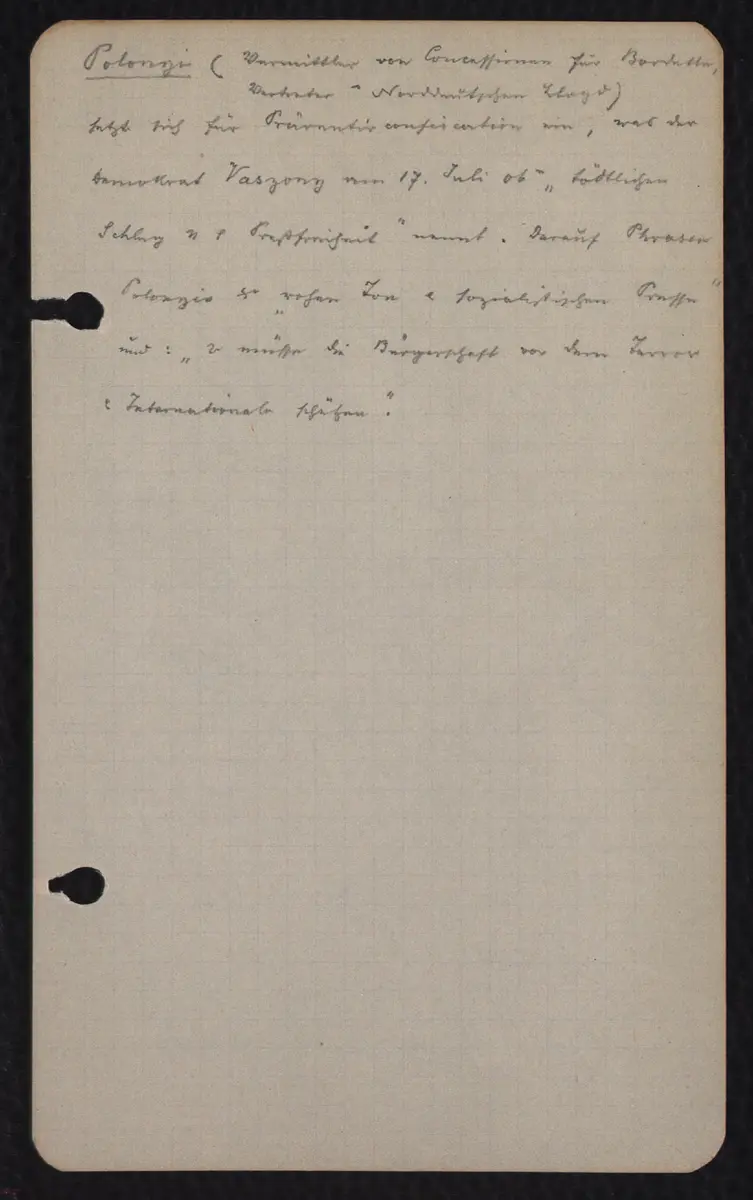 Polonyi ( Vermittler von Concessionen für Bordelle,
Vertreter Norddeutschen Lloyd)
setzt sich für Präventivconfiscation ein, was der
Demokrat Vaszony am 17. Juli „tödtlichen
Schlag Preßfreiheit" nennt. Darauf Phrasen
Polonyis „rohen Ton sozialistischen Presse"
und: „ müsse die Bürgerschaft vor dem Terror
Internationale schützen".